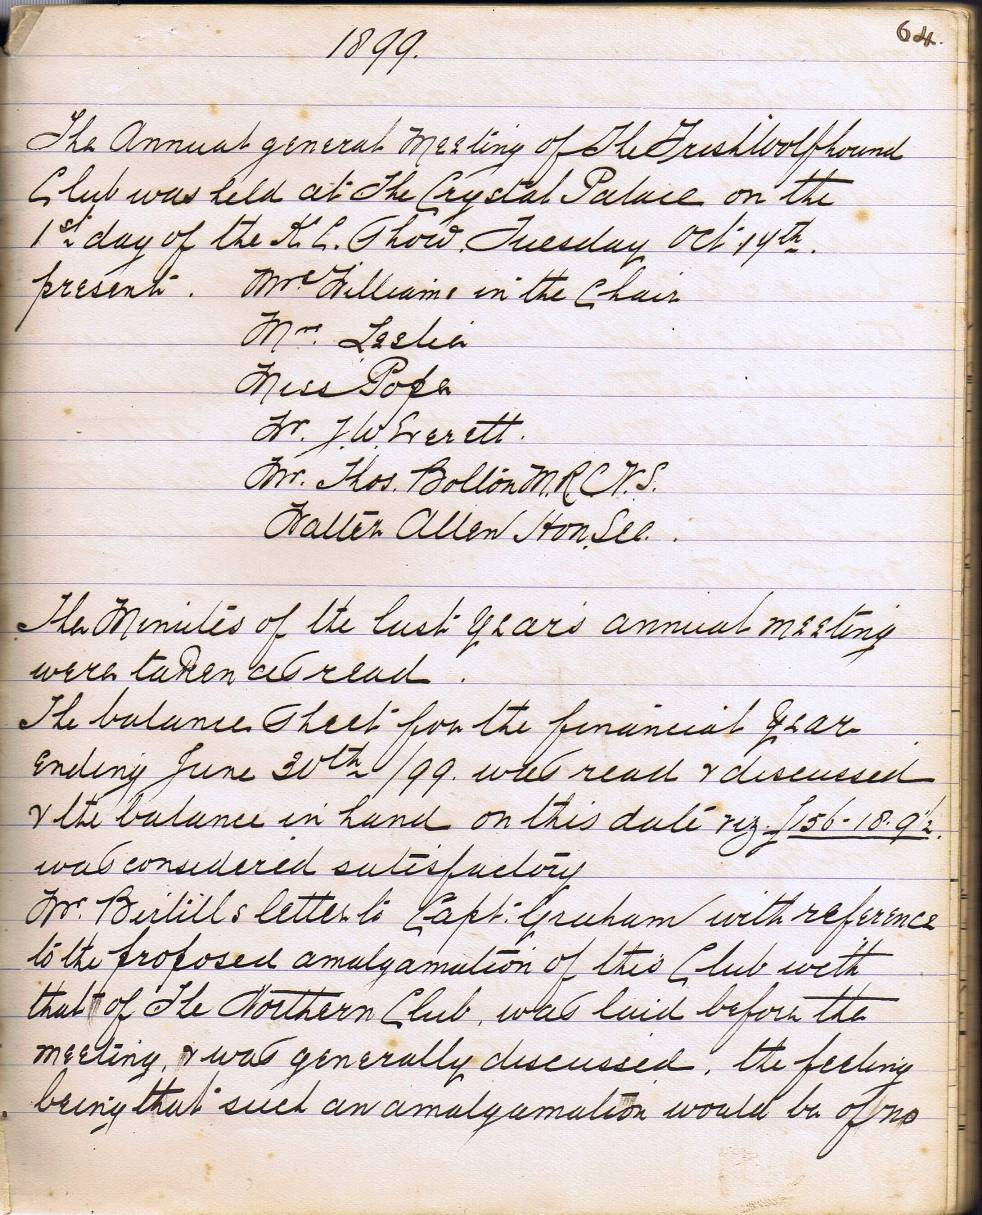 64.
1899.
The Annual general Meeting of The Irish Wolfhound
Club was held at The Crystal Palace on the
1st day of the K.C. Show. Tuesday Oct
present. Mrs Williams in the Chair
Mrs. Leslie
Miss Pope
Mr. J.W. Everett.
Mr. Thos. Bolton M.R.C.V.S.
Walter Allen Hon. Sec.
The Minutes of the last Year's annual meeting
were taken as read.
The balance Sheet for the financial Year
ending June 30th /99. was read & discussed
& the balance in hand on this date viz. £156-18-9½.
was considered satisfactory
Mr. letter to Capt. Graham with reference
to the proposed amalgamation of this Club with
that of The Northern Club, was laid before the
meeting, & was generally discussed, the feeling
being that such an amalgamation would be of no